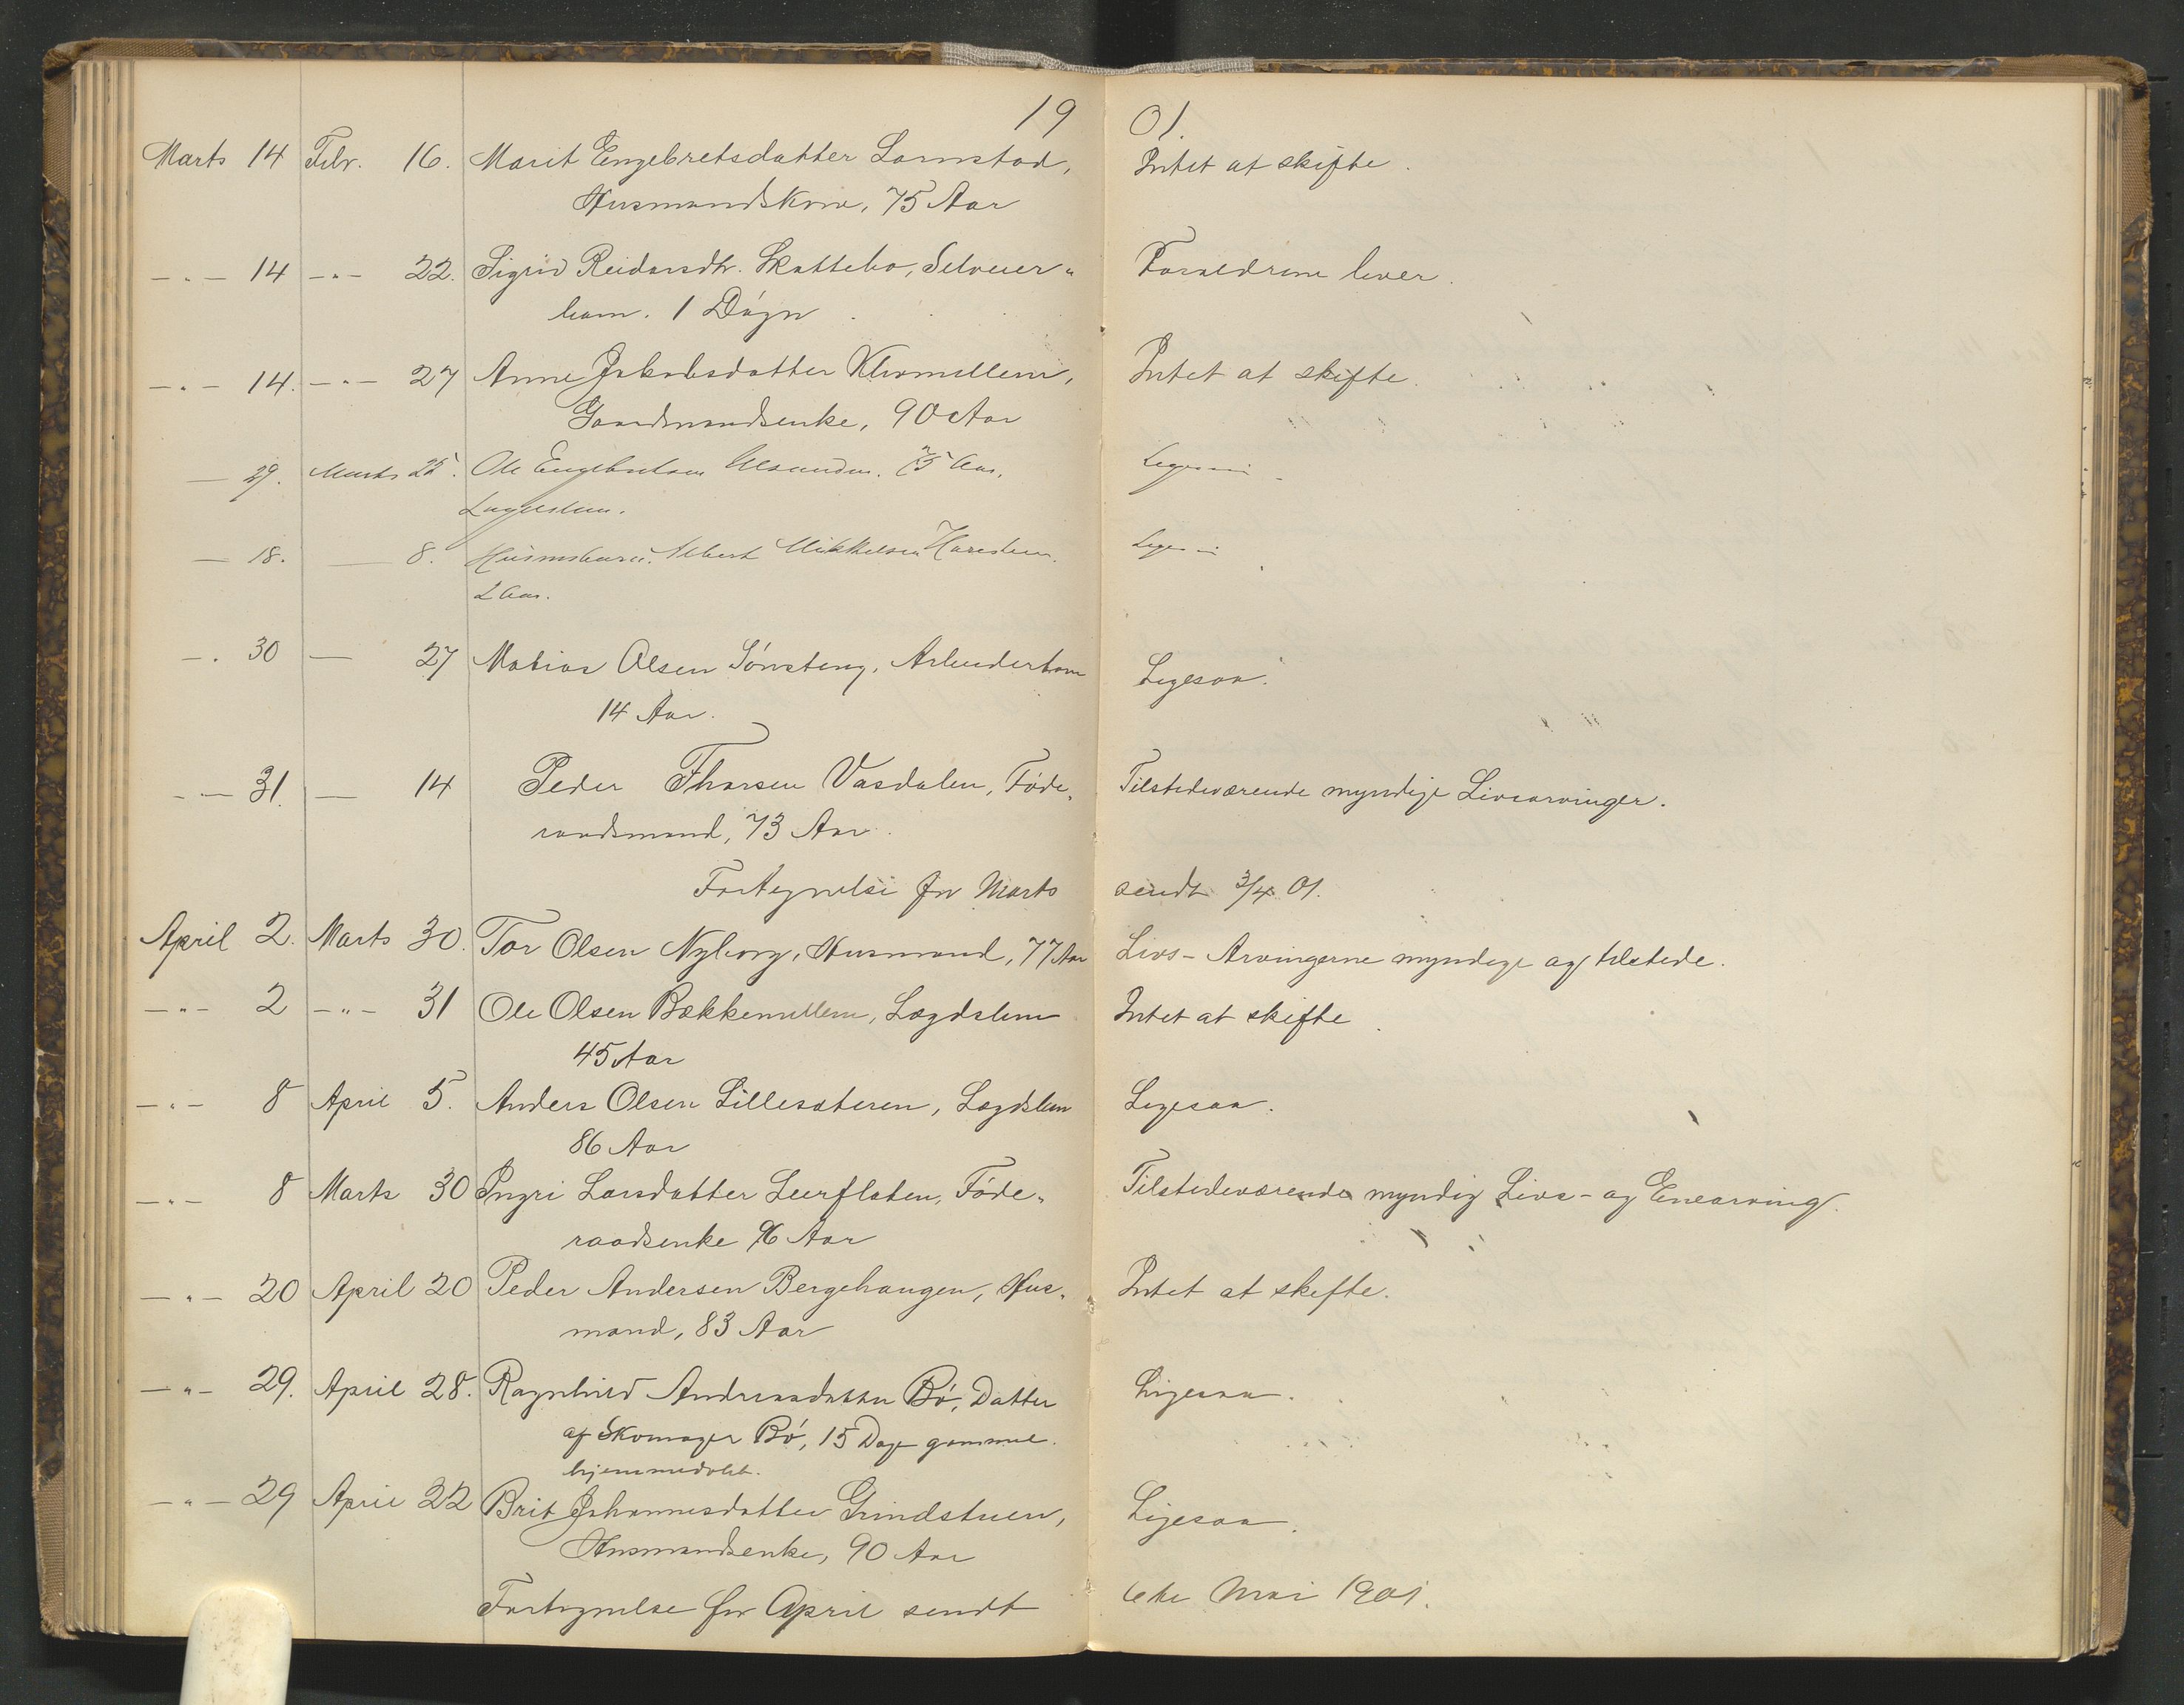 1901.
Marts 14 Febr. 16. Marit Engebretsdatter Lornstad, Intet at skifte.
Husmandskone, 75 Aar
-"- 14 -"- 22. Sigrid Reidarsdtr. Skattebo, Selveier- Forældrene lever.
barn. 1 Døgn
-"- 14. -"- 27 Anne Jakobsdatter Intet at skifte.
Gaardmandsenke, 90 Aar
— 29. Marts 25. Ole Engebretsen 75 Aar. Ligesaa
Lægdslem.
— 18. — 8. Husmsbarn. Albert Mikkelsen Ligesaa
2 Aar.
-. 30 — 27 Matias Olsen Sønsteng, Arbeiderbarn Ligesaa.
14 Aar.
-— 31. — 14 Peder Thorsen Vasdalen, Føde- Tilstedeværende myndige Livsarvinger.
raadsmand, 73 Aar.
Fortegnelse for Marts sendt 3/4 01.
April 2. Marts 30. Tor Olsen Nyborg, Husmand, 77 Aar Livs-Arvingerne myndige og tilstede.
-"- 2 -"- 31 Ole Olsen Bækkemellem, Lægdslem Intet at skifte.
45 Aar
-"- 8 April 5. Anders Olsen Lillesæteren, Lægdslem Ligesaa.
86 Aar
-"- 8 Marts 30 Ingri Larsdatter Leerflaten, Føde- Tilstedeværende myndig Livs- og Enearving.
raadsenke Aar
-"- 20 April 20 Peder Andersen Bergehaugen, Hus- Intet at skifte.
mand, 83 Aar
-"- 29. April 28. Ragnhild Andreasdatter Bø, Datter Ligesaa.
af Skomager Bø, 15 Dage gammel.
hjemmedøbt.
-"- 29 April 22 Brit Johannesdatter Grindstuen, Ligesaa.
Husmandsenke, 90 Aar
Fortegnelse for April sendt 6te Mai 1901.